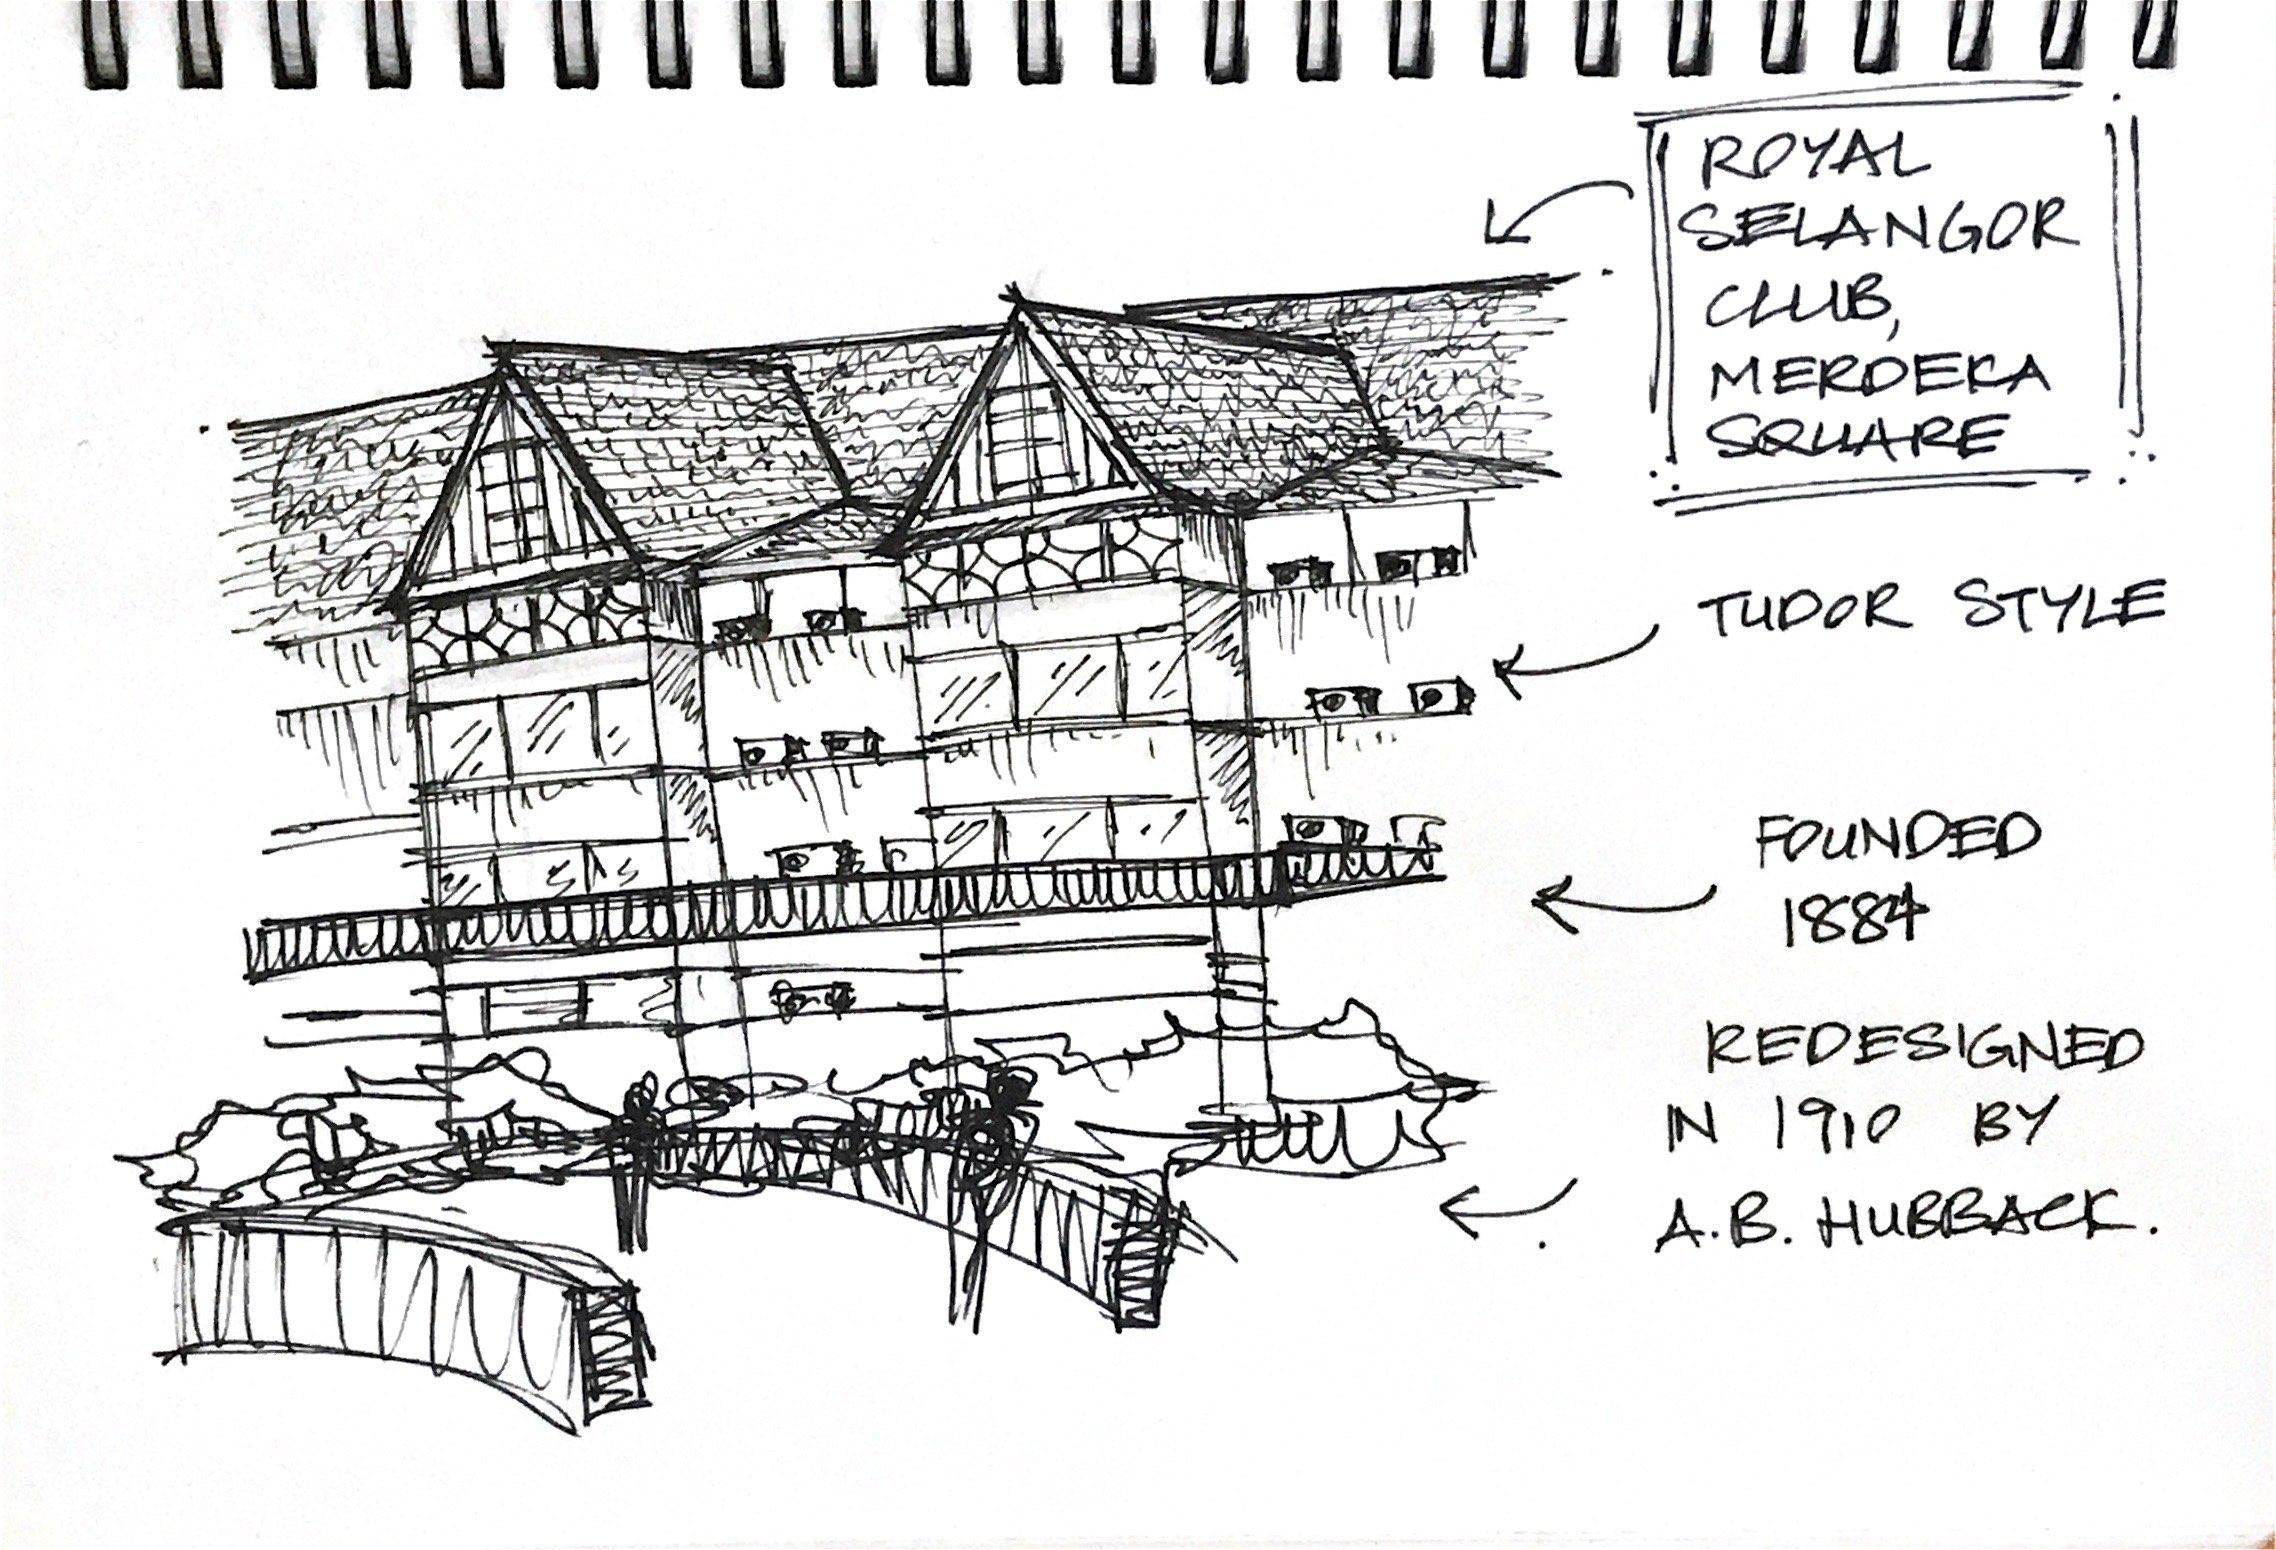 ROYAL
SELANGOR
CLUB,
MERDEKA
SQUARE
TUDOR STYLE
FOUNDED
1884
REDESIGNED
IN 1910 BY
A.B. HUBBACK.